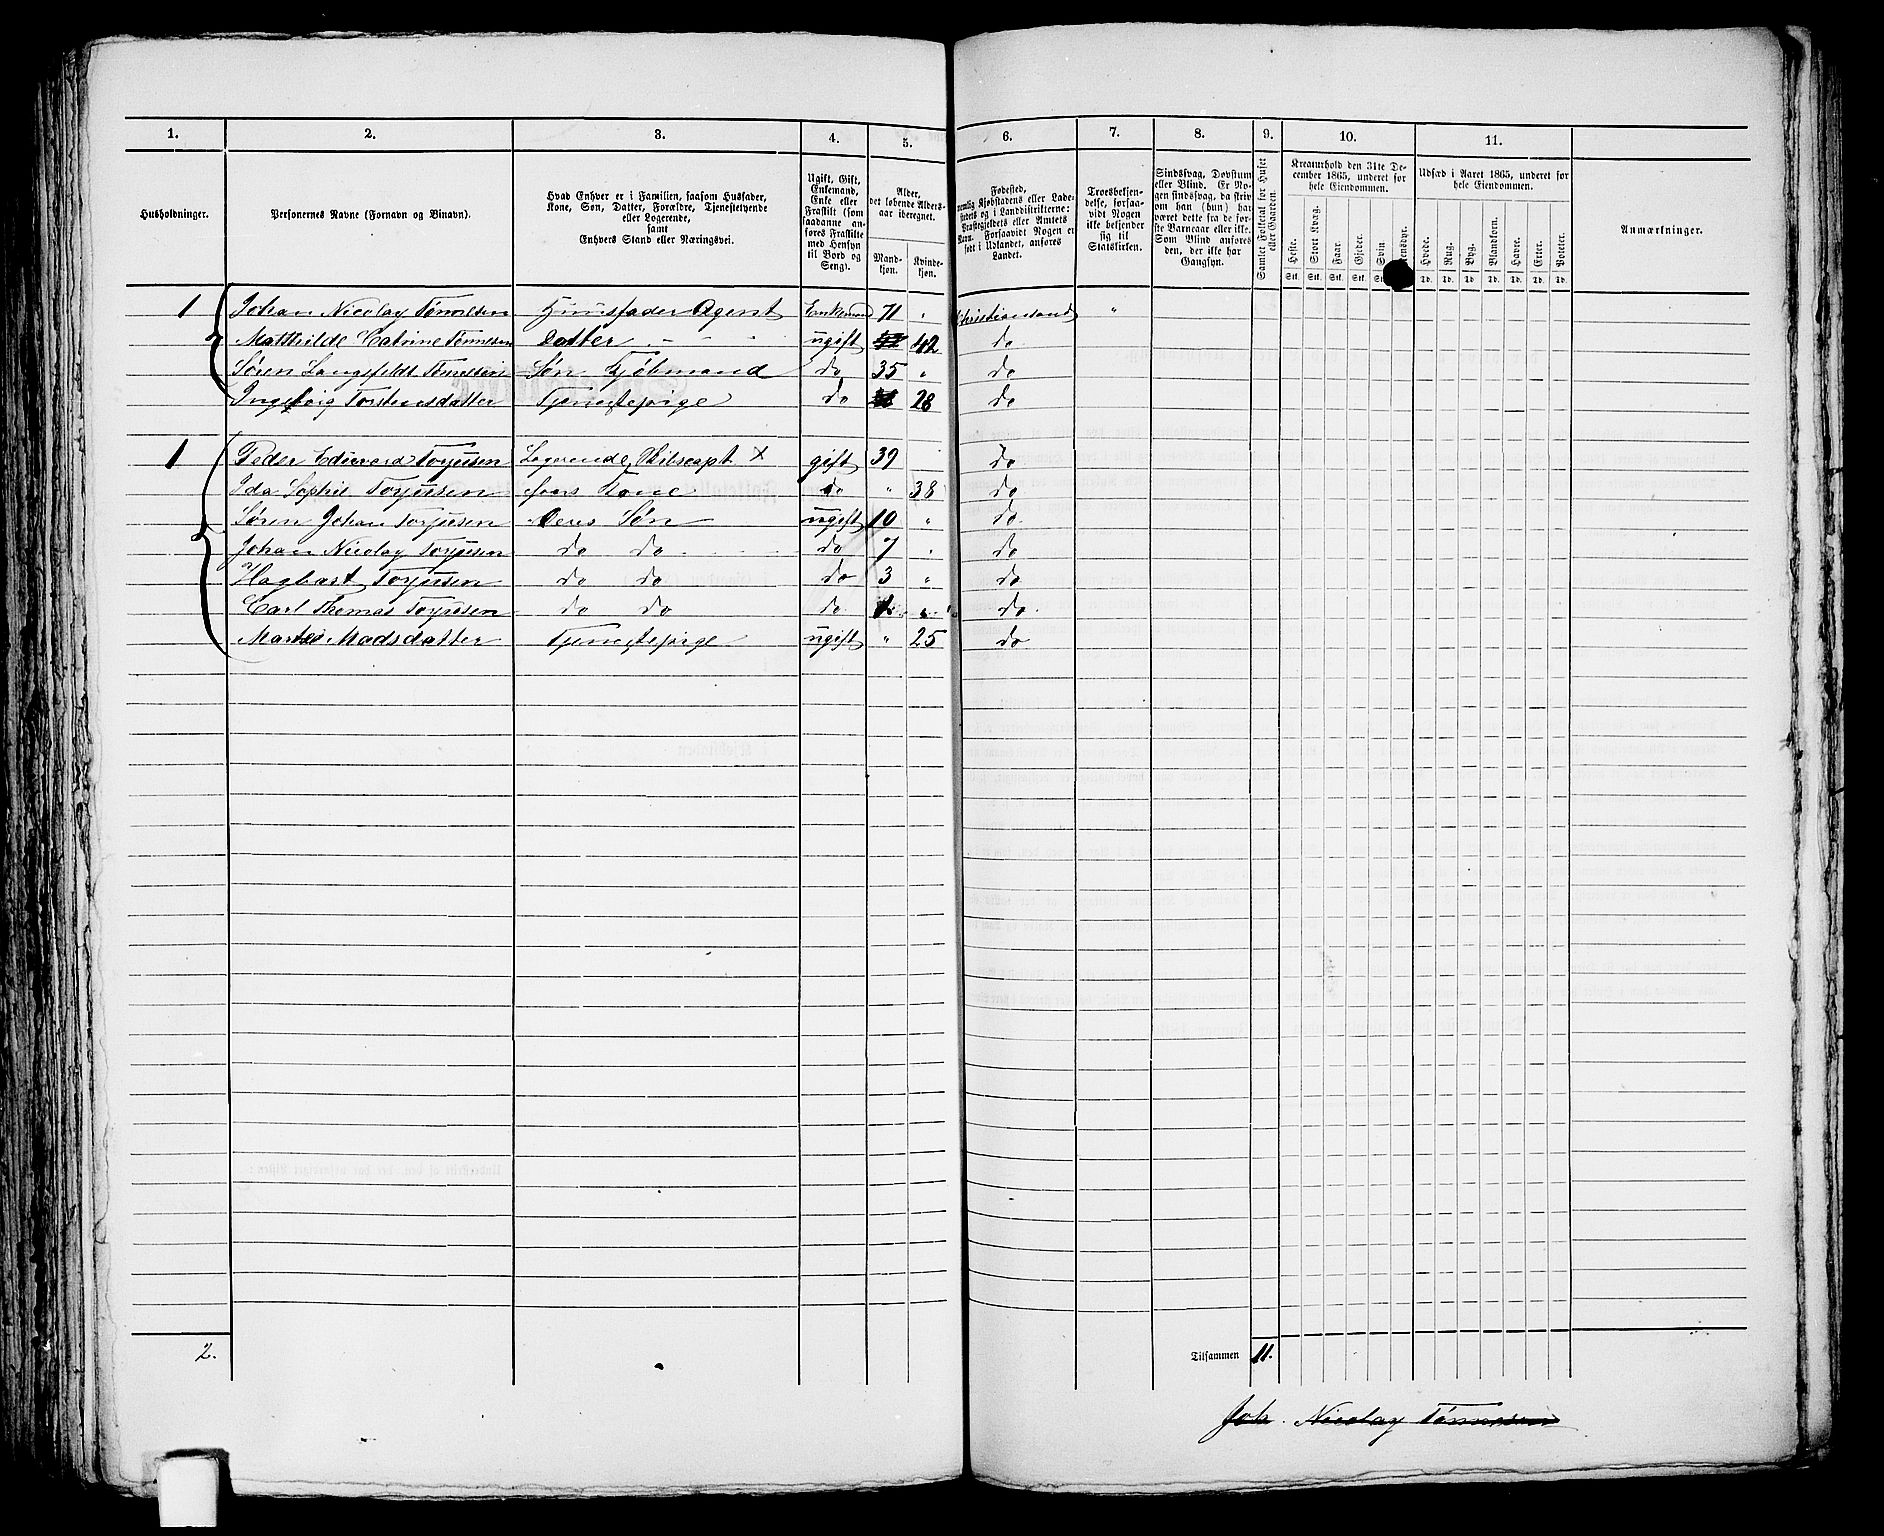 1. 2. 3. 4. 5. 6. 7. 8. 9. 10. 11.
Husholdninger.
Personernes Navne (Fornavn og Binavn).
Hvad Enhver er i Familien, saasom Husfader,
Kone, Søn, Datter, Forældre, Tjenestetyende
eller Logerende,
samt
Enhvers Stand eller Næringsvei.
Ugift, Gift,
Enkemand,
Enke eller
Fraskilt (som
saadanne an-
føres Fraskilte
med Hensyn
til Bord og
Seng).
Alder,
det løbende Alders-
aar iberegnet.
Mand-
kjøn.
Kvinde-
kjøn.
Fødested,
nemlig Kjøbstadens eller Lade-
stedets og i Landdistrikterne:
Præstegjeldets eller Amtets
Navn. Forsaavidt Nogen er
født i Udlandet, anføres
Landet.
Troesbekjen-
delse, forsaa-
vidt Nogen
ikke bekjender
sig til
Statskirken.
Sindssvag, Døvstum
eller Blind. Er No-
gen sindssvag, da skriv
om han (hun) har
været dette fra de før-
ste Barneaar eller ikke.
Som Blind anføres
den, der ikke har
Gangsyn.
Samlet Folketal for Huset
eller Gaarden.
Kreaturhold den 31te De-
cember 1865, underet for
hele Eiendommen.
Heste. Stort Kvæg. Faar. Gjeder. Svin
Stk. Stk. Stk. Stk.
Udsæd i Aaret 1865, underet for
hele Eiendommen.
Hvede. Rug. Byg. Blandkorn. Havre. Erter. Poteter.
Td. Td. Td. Td. Td. Td. Td.
Anmærkninger.
1 Johan Nicolay Tønnesen Huusfader Agent Enkemand 71 " Christiansand "
Matthilde Catrine Tønnesen Datter ugift 42 do
Søren Langfeldt Tønnesen Søn Kjøbmand do 35 " do
Ingeborg Torstensdatter Tjenestepige do 28 do
1 Peder Edward Torjusen Logerende, Skibscapt X gift 39 do
Ida Sophie Torjusen hans Kone do " 38 do
Søren Johan Torjusen Deres Søn ugift 10 " do
Johan Nicolay Torjusen do do do 7 " do
Hagbart Torjusen do do do 3 " do
Carl Thomas Torjusen do do do 1 " do
Madsdatter Tjenestepige ugift " 25 do
2.
Tilsammen 11.
Joh. Nicolay Tønnesen